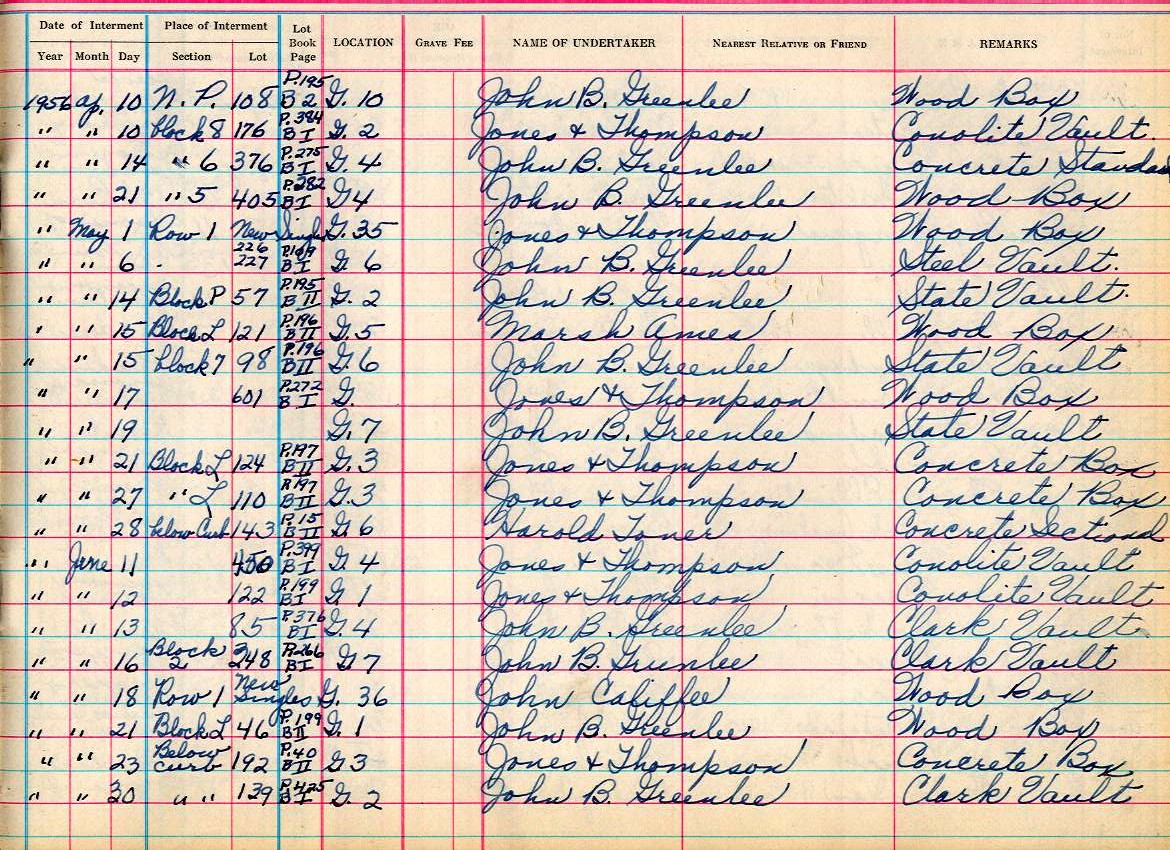 Date of Interment Place of Interment Lot Book Page LOCATION GRAVE FEE NAME OF UNDERTAKER NEAREST RELATIVE OR FRIEND REMARKS
Year Month Day Section Lot
1956 Ap. 10 N. P. 108 P.195 B 2 G. 10 John B. Greenlee Wood Box
" " 10 block 8 176 P.384 B I G. 2 Jones & Thompson Conolite Vault.
" " 14 " 6 376 P.275 B I G. 4 John B. Greenlee Concrete Standa
" " 21 " 5 405 P.282 B I G 4 John B. Greenlee Wood Box
" May 1 Row 1 New Single G. 35 Jones & Thompson Wood Box
" " 6 226 227 B I G. 6 John B. Greenlee Steel Vault.
" " 14 Block P 57 P.195 B II G. 2 John B. Greenlee State Vault.
" " 15 Block L 121 P.196 B II G. 5 Marsh Ames Wood Box
" " 15 block 7 98 P.196 B II G. 6 John B. Greenlee State Vault
" " 17 601 P.272 B I G. Jones & Thompson Wood Box
" " 19 G. 7 John B. Greenlee State Vault
" " 21 Block L 124 P.197 B II G. 3 Jones & Thompson Concrete Box
" " 27 " L 110 P.197 B II G. 3 Jones & Thompson Concrete Box
" " 28 below Curb 143 P.15 B II G. 6 Harold Toner Concrete Sectional
" June 11 450 P.399 B I G. 4 Jones & Thompson Conolite Vault
" " 12 122 P.199 B I G. 1 Jones & Thompson Conolite Vault
" " 13 85 P.376 B I G. 4 John B. Greenlee Clark Vault
" " 16 Block 2 248 P.266 B I G. 7 John B. Greenlee Clark Vault
" " 18 Row 1 New Singles G. 36 John Califfee Wood Box
" " 21 Block L 46 P.199 B II G. 1 John B. Greenlee Wood Box
" " 23 Below curb 192 P.40 B II G 3 Jones & Thompson Concrete Box
" " 30 " " 139 P.425 B I G. 2 John B. Greenlee Clark Vault